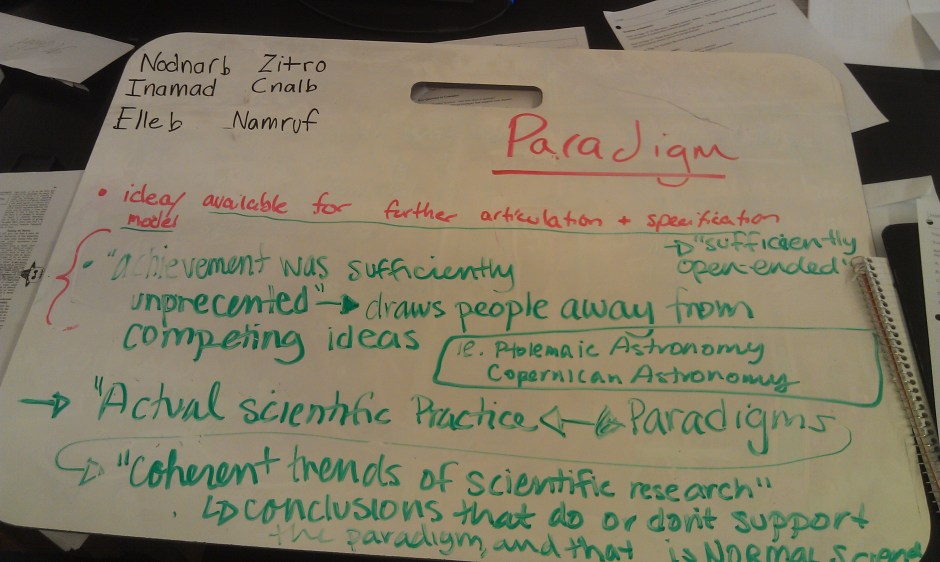 Nodnarb Zitro
Inamad Cnalb
Elleb Namruf
Paradigm
• idea/ available for further articulation + specification
model
→ "sufficiently
open-ended"
• "achievement was sufficiently
unprecented" → draws people away from
competing ideas
ie. Ptolemaic Astronomy
Copernican Astronomy
→ "Actual scientific Practice ↔ Paradigms
↳ "Coherent trends of scientific research"
↳ conclusions that do or don't support
the paradigm, and that is NORMAL